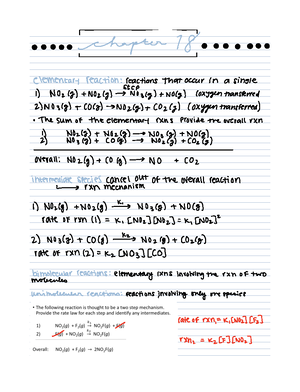 chapter 18
elementary reaction: reactions that occur in a single step
1) NO₂(g) + NO₂(g) → NO₃(g) + NO(g) (oxygen transferred)
2) NO₃(g) + CO(g) → NO₂(g) + CO₂(g) (oxygen transferred)
• The sum of the elementary rxns provide the overall rxn
1) NO₂(g) + NO₂(g) → NO₃(g) + NO(g)
2) NO₃(g) + CO(g) → NO₂(g) + CO₂(g)
overall: NO₂(g) + CO(g) → NO + CO₂
intermediate species cancel out of the overall reaction
→ rxn mechanism
1) NO₂(g) + NO₂(g) k₁→ NO₃(g) + NO(g)
rate of rxn (1) = k₁[NO₂][NO₂] = k₁[NO₂]²
2) NO₃(g) + CO(g) k₂→ NO₂(g) + CO₂(g)
rate of rxn (2) = k₂[NO₃][CO]
bimolecular reactions: elementary rxns involving the rxn of two
molecules
unimolecular reactions: reactions involving only one species
• The following reaction is thought to be a two step mechanism.
Provide the rate law for each step and identify any intermediates.
1) NO₂(g) + F₂(g) k₁→ NO₂F(g) + F(g)
2) F(g) + NO₂(g) k₂→ NO₂F(g)
Overall: NO₂(g) + F₂(g) → 2NO₂F(g)
rate of rxn₁ = k₁[NO₂][F₂]
rxn₂ = k₂[F][NO₂]